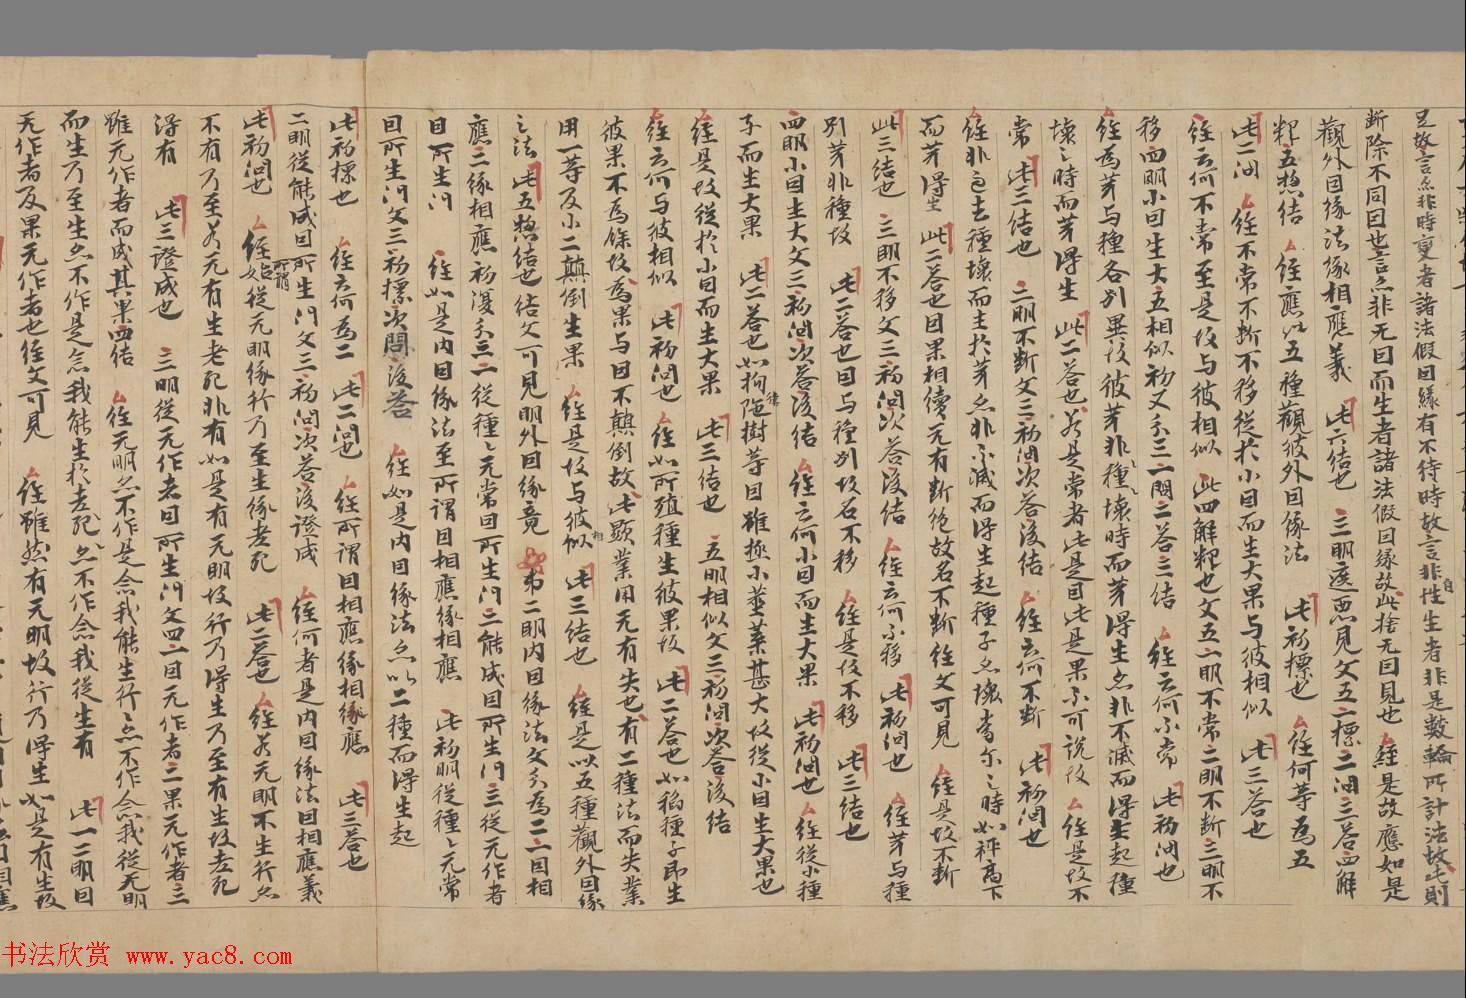 足故言亦非時變者諸法假因緣有不待時故言非自性生者非是數輪所計法故此則
斷除不同因也言亦非无因而生者諸法假因緣故此捨无因見也 經是故應如是
觀外因緣法緣相應義 此六結也 三明遮惡見文五一標二問三答四解
釋五惣結 經應以五種觀彼外因緣法 此初標也 經何等為五
此二問 經不常不斷不移從於小因而生大果與彼相似 此三答也
經云何不常至是故與彼相似 此四解釋也文五一明不常二明不斷三明不
移四明小因生大五相似初文分三一問二答三結 經云何不常 此初問也
經為芽與種各別異故彼芽非種壞時而芽得生亦非不滅而得生起種
壞之時而芽得生 此二答也若是常者此是因此是果不可說故 經是故不
常 此三結也 二明不斷文三初問次答後結 經云何不斷 此初問也
經非過去種壞而生於芽亦非不滅而得生起種子亦壞當尔之時如秤高下
而芽得生 此二答也因果相續无有斷絕故名不斷經文可見 經是故不斷
此三結也 三明不移文三初問次答後結 經云何不移 此初問也 經芽與種
別芽非種故 此二答也因與種別故名不移 經是故不移 此三結也
四明小因生大文三初問次答後結 經云何小因而生大果 此初問也 經從小種
子而生大果 此二答也如拘陁樹等因雖極小莖葉甚大故從小因生大果也
經是故從於小因而生大果 此三結也 五明相似文三初問次答後結
經云何與彼相似 此初問也 經如所殖種生彼果故 此二答也如稻種子即生
彼果不為餘故為果與因不顛倒故此顯業用无有失也有二種法而失業
用一等及小二顛倒生果 經是故與彼相似 此三結也 經是以五種觀外因緣
之法 此五惣結也結文可見明外因緣竟 第二明內因緣法文分為二一因相
應二緣相應初復分三一從種種元常因所生門二能成因所生門三從无作者
因所生門 經如是內因緣法至所謂因相應緣相應 此初明從種種元常
因所生門文三初摽次問後答 經如是內因緣法亦以二種而得生起
此初摽也 經云何為二 此二問也 經所謂因相應緣相應 此三答也
二明從能成因所生門文三初問次答後證成 經何者是內因緣法因相應義
此初問也 經所謂始從无明緣行乃至生緣老死 此二答也 經若无明不生行亦
不有乃至若无有生老死非有如是有无明故行乃得生乃至有生故老死
得有 此三證成也 三明從无作者因所生門文四一因元作者二果元作者三
雖元作者而成其果四結 經无明亦不作是念我能生行行亦不作念我從无明
而生乃至生亦不作是念我能生於老死老死亦不作念我從生有 此一二明因
无作者及果元作者也經文可見 經雖然有无明故行乃得生如是有生故
書法欣赏 www.yac8.com